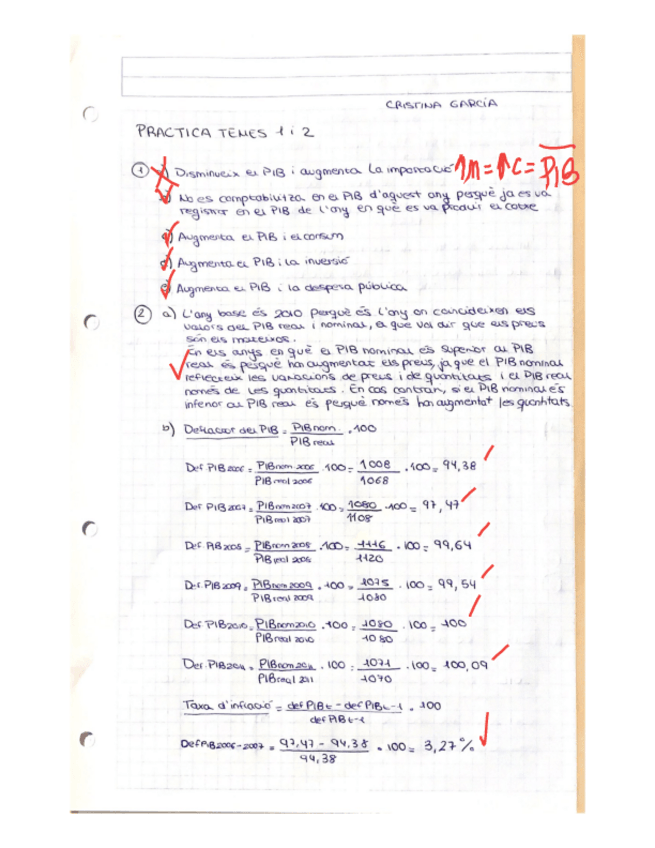 CRISTINA GARCÍA
PRACTICA TEMES 1 i 2
① a) Disminueix el PIB i augmenta la importació ↑M = ↑C = P̅I̅B̅
b) No es comptabilitza en el PIB d'aquest any perquè ja es va
registrar en el PIB de l'any en què es va produir el cotxe
c) Augmenta el PIB i el consum
d) Augmenta el PIB i la inversió
e) Augmenta el PIB i la despesa pública
② a) L'any base és 2010 perquè és l'any on coincideixen els
valors del PIB real i nominal, el que vol dir que els preus
són els mateixos.
En els anys en què el PIB nominal és superior al PIB
real és perquè han augmentat els preus, ja que el PIB nominal
reflecteix les variacions de preus i de quantitats i el PIB real
només de les quantitats. En cas contrari, si el PIB nominal és
inferior al PIB real és perquè només han augmentat les quantitats
b) Deflactor del PIB = PIB nom / PIB real · 100
Def PIB 2006 = PIB nom 2006 / PIB real 2006 · 100 = 1008 / 1068 · 100 = 94,38
Def PIB 2007 = PIB nom 2007 / PIB real 2007 · 100 = 1080 / 1108 · 100 = 97,47
Def. PIB 2008 = PIB nom 2008 / PIB real 2008 · 100 = 1116 / 1120 · 100 = 99,64
Def. PIB 2009 = PIB nom 2009 / PIB real 2009 · 100 = 1075 / 1080 · 100 = 99,54
Def PIB 2010 = PIB nom 2010 / PIB real 2010 · 100 = 1080 / 1080 · 100 = 100
Def. PIB 2011 = PIB nom 2011 / PIB real 2011 · 100 = 1071 / 1070 · 100 = 100,09
Taxa d'inflació = def PIB t - def PIB t-1 / def PIB t-1 · 100
Def PIB 2006-2007 = 97,47 - 94,38 / 94,38 · 100 = 3,27%